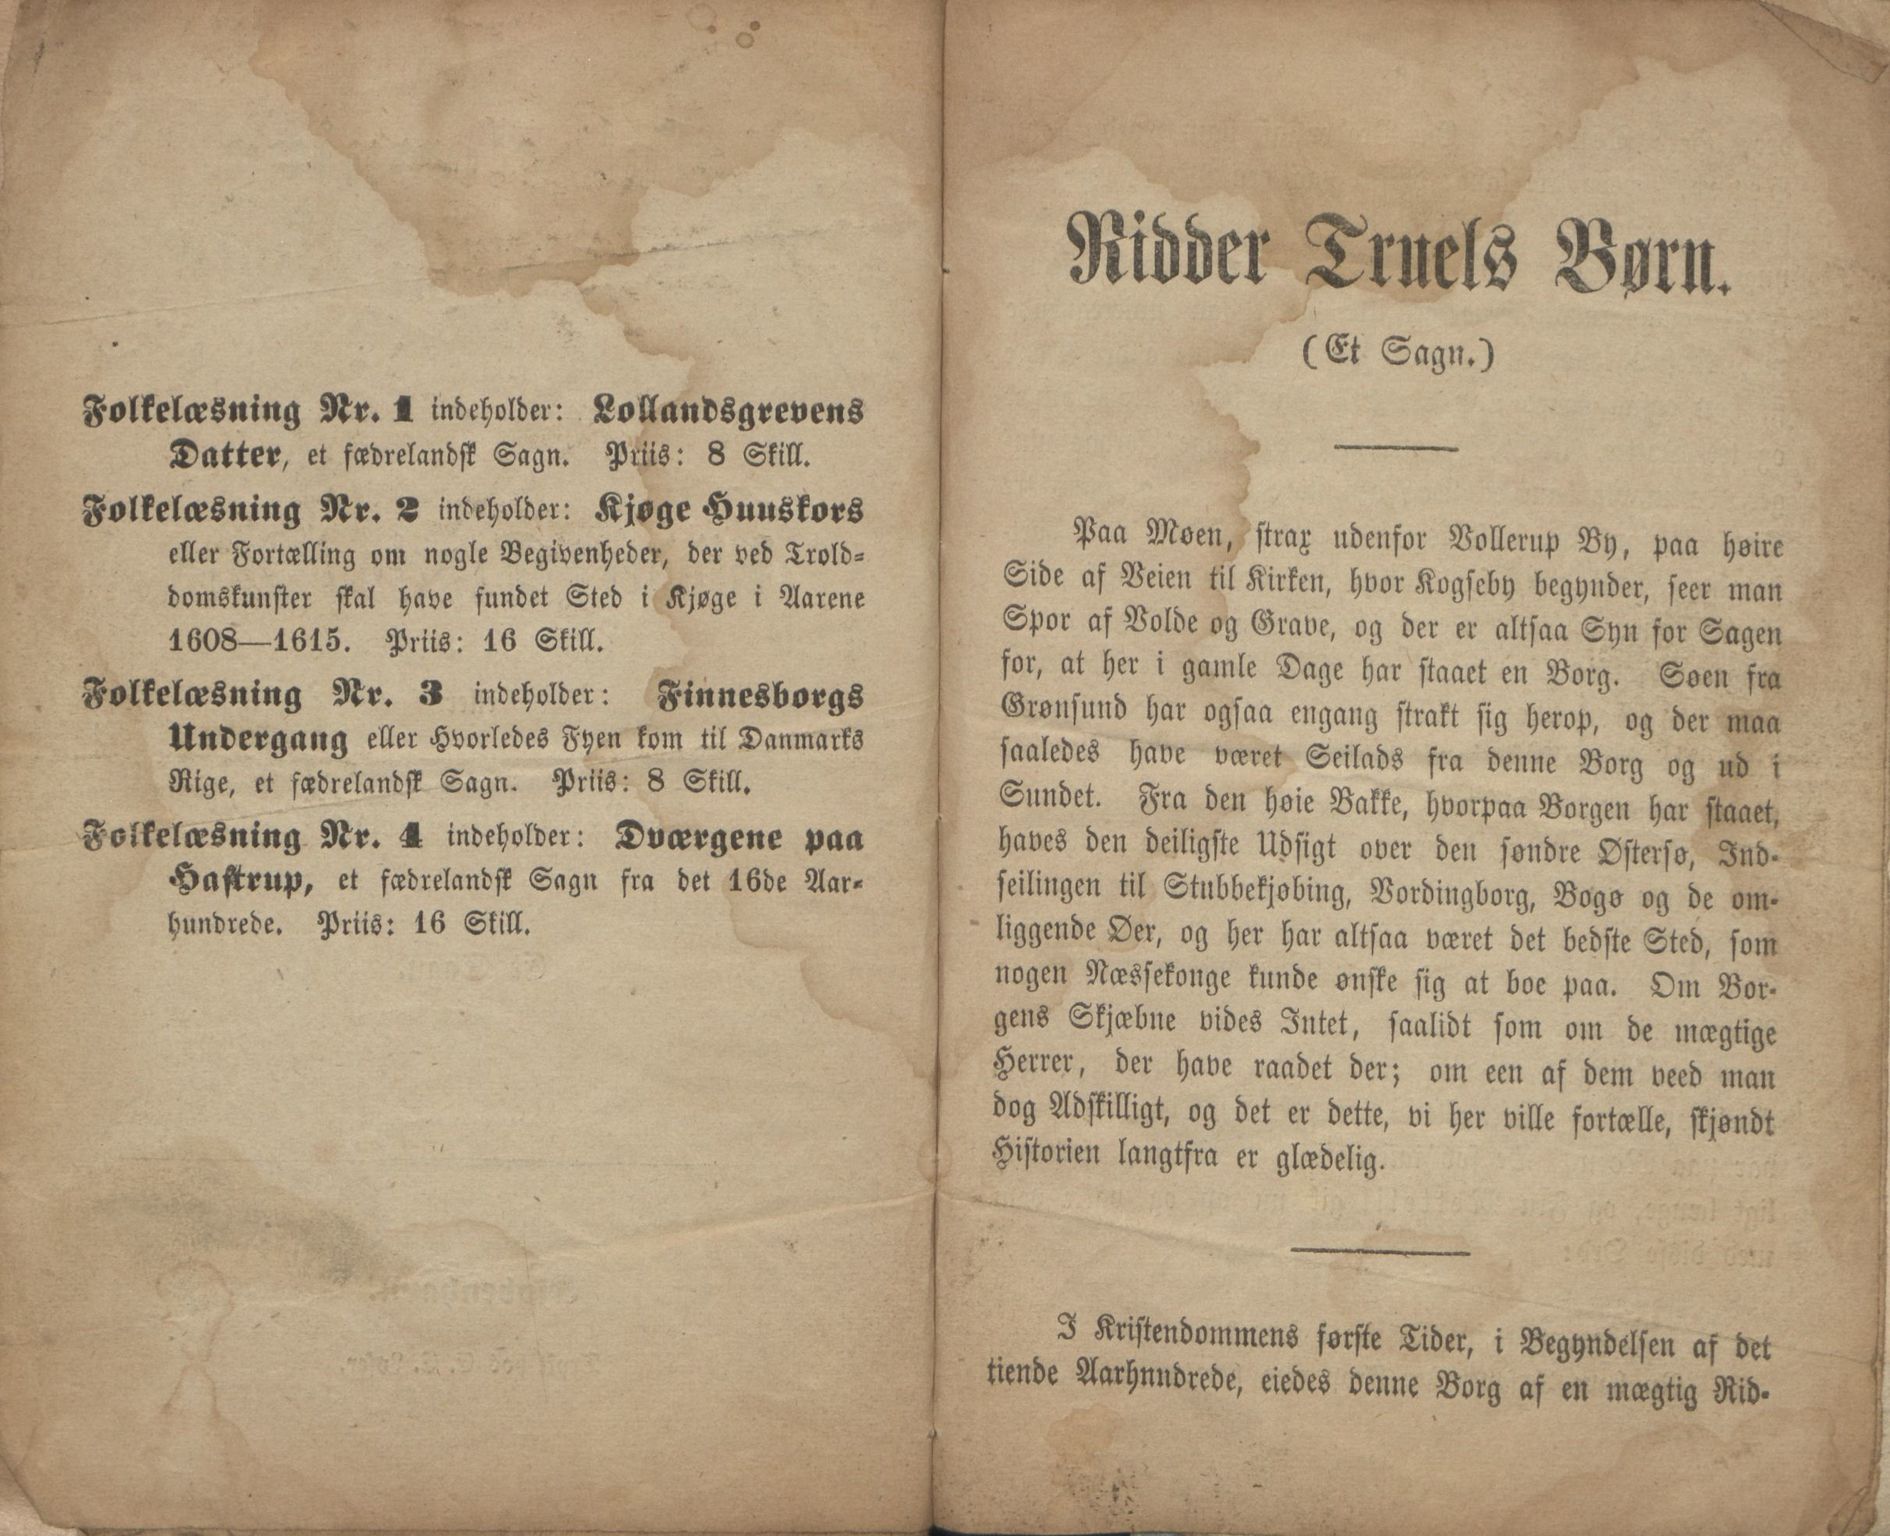 Folkelæsning Nr. 1 indeholder: Lollandsgrevens
Datter, et fædrelandsk Sagn. Priis: 8 Skill.
Folkelæsning Nr. 2 indeholder: Kjøge Huuskors
eller Fortælling om nogle Begivenheder, der ved Trold-
domskunster skal have fundet Sted i Kjøge i Aarene
1608—1615. Priis: 16 Skill.
Folkelæsning Nr. 3 indeholder: Finnesborgs
Undergang eller Hvorledes Fyen kom til Danmarks
Rige, et fædrelandsk Sagn. Priis: 8 Skill.
Folkelæsning Nr. 4 indeholder: Dværgene paa
Hastrup, et fædrelandsk Sagn fra det 16de Aar-
hundrede. Priis: 16 Skill.
Ridder Truels Børn.
(Et Sagn.)
Paa Møen, strax udenfor Vollerup By, paa høire
Side af Veien til Kirken, hvor Kogseby begynder, seer man
Spor af Volde og Grave, og der er altsaa Syn for Sagen
for, at her i gamle Dage har staaet en Borg. Søen fra
Grønsund har ogsaa engang strakt sig herop, og der maa
saaledes have været Seilads fra denne Borg og ud i
Sundet. Fra den høie Bakke, hvorpaa Borgen har staaet,
haves den deiligste Udsigt over den søndre Østersø, Ind-
seilingen til Stubbekjøbing, Vordingborg, Bogø og de om-
liggende Øer, og her har altsaa været det bedste Sted, som
nogen Næssekonge kunde ønske sig at boe paa. Om Bor-
gens Skjæbne vides Intet, saalidt som om de mægtige
Herrer, der have raadet der; om een af dem veed man
dog Adskilligt, og det er dette, vi her ville fortælle, skjøndt
Historien langtfra er glædelig.
I Kristendommens første Tider, i Begyndelsen af det
tiende Aarhnndrede, eiedes denne Borg af en mægtig Rid-